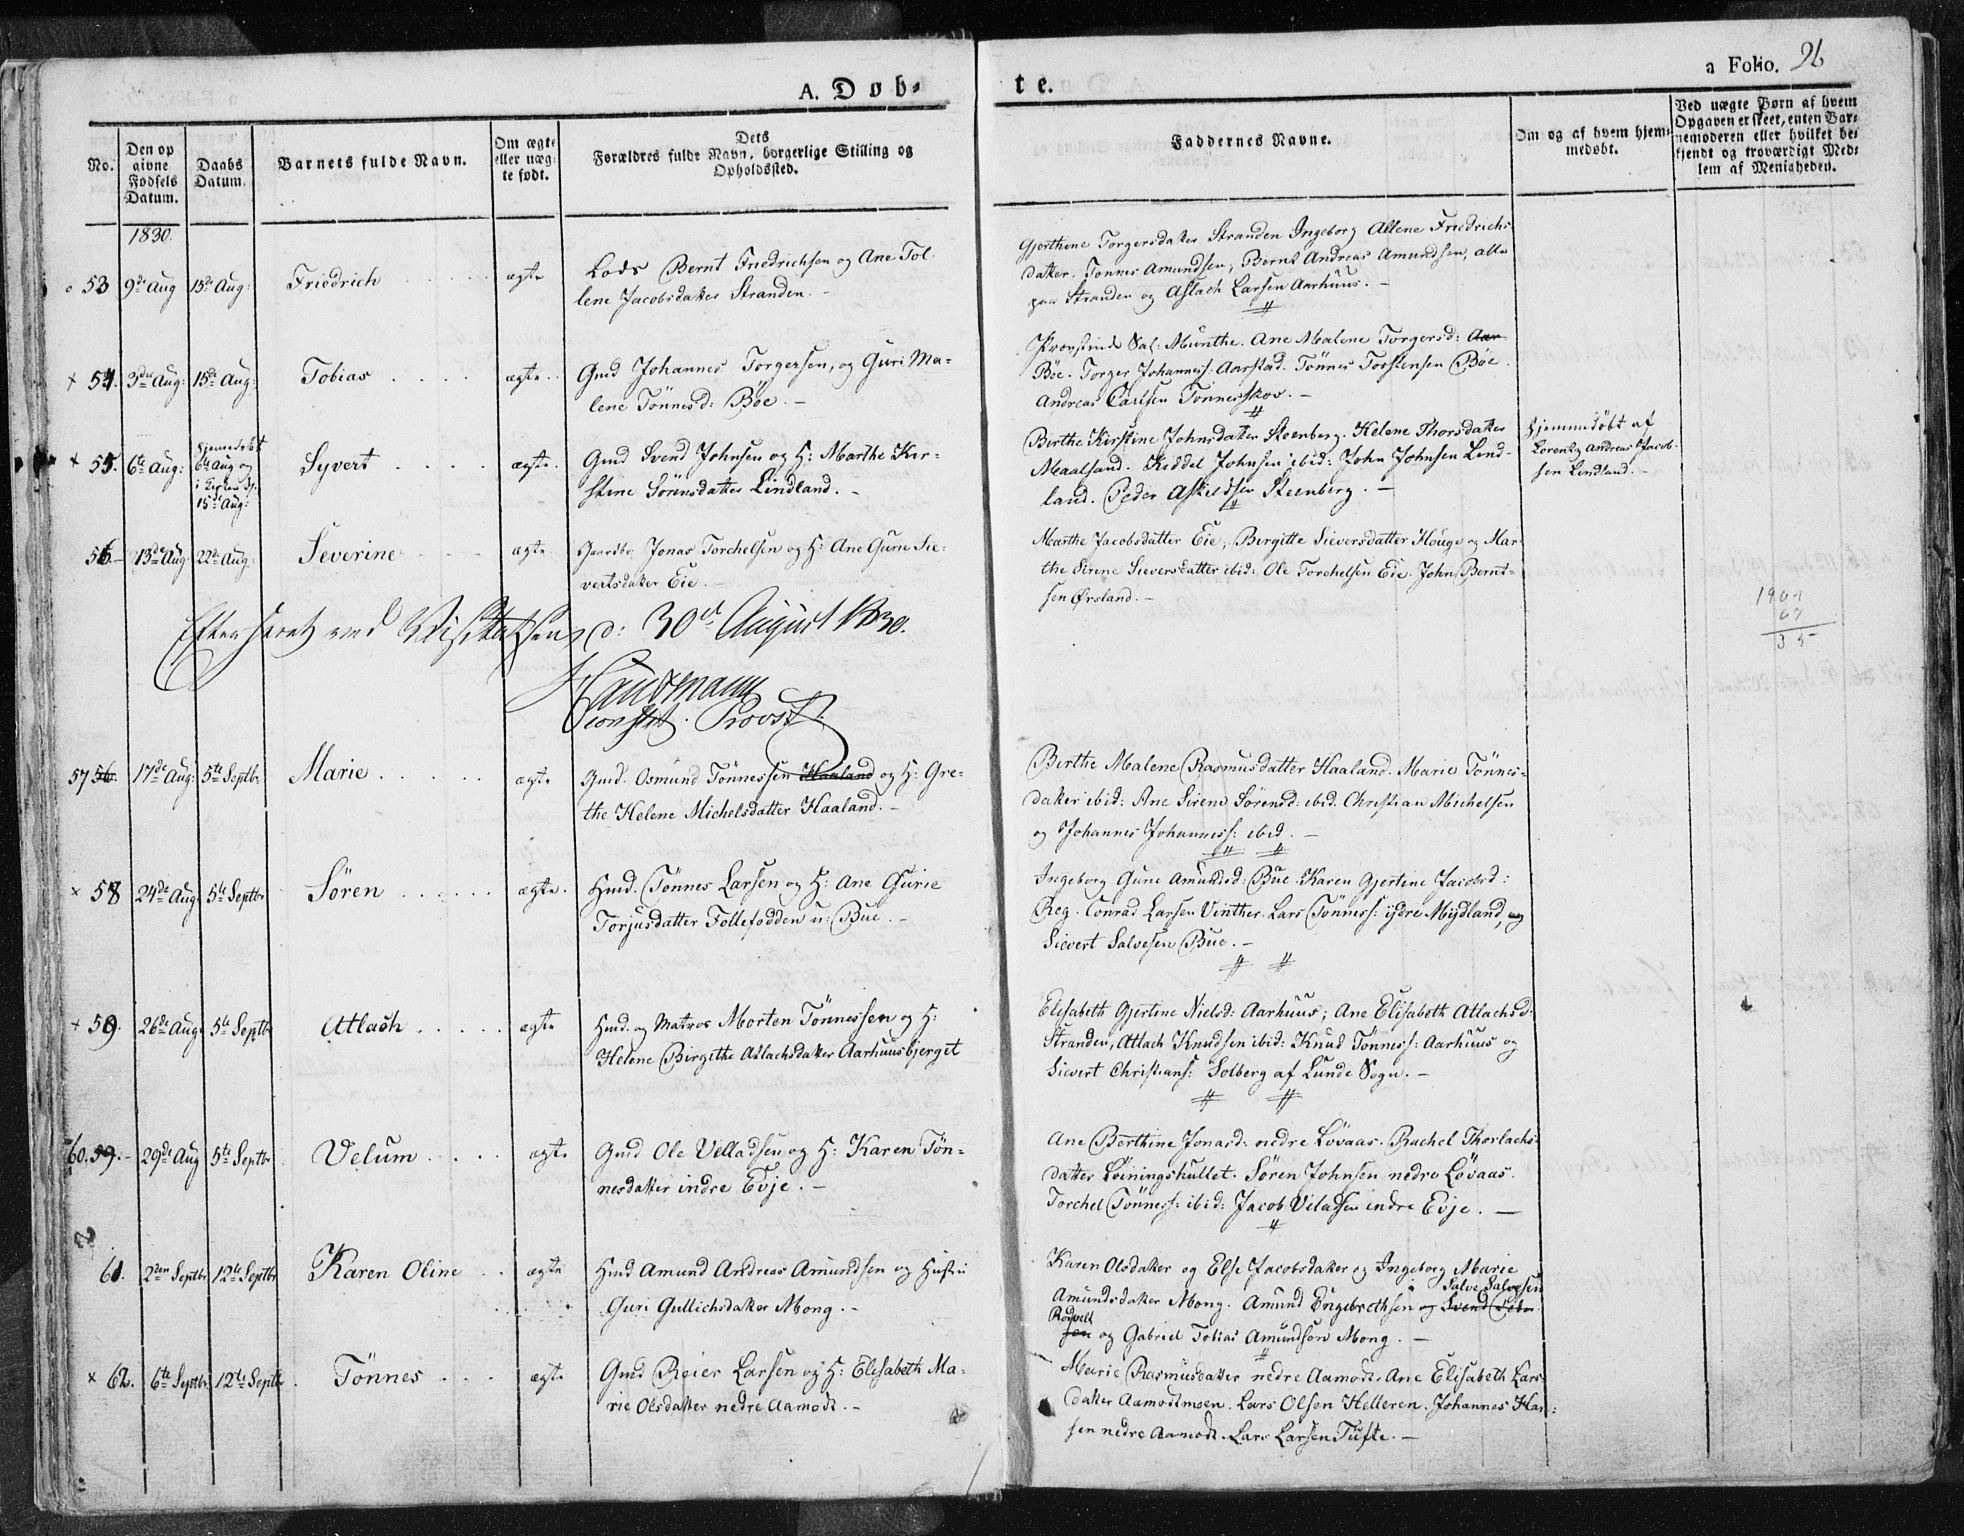 A. Døb-
te.
a Folio. 26
No.
Den op
givne
Fødsels
Datum.
Daabs
Datum.
Barnets fulde Navn.
Om ægte
eller uæg-
te født.
Dets
Forældres fulde Navn, borgerlige Stilling og
Opholdssted.
Faddernes Navne.
Om og af hvem hjem-
medøbt.
Ved uægte Børn af hvem
Opgaven er skeet, enten Bar-
nemoderen eller hvilket be-
kjendt og troværdigt Med-
lem af Menigheden.
1830.
53 9de Aug 15de Aug: Friedrich ægte
Lods Bernt Friedrichsen og Ane Tol
lene Jacobsdatter Stranden. -
Gjerthine Torgersdatter Stranden Ingeborg Allene Friedrichs
datter. Tonnes Amundsen, Bernt Andreas Amundsen, alle
paa Stranden og Aslach Larsen Aarhuus. -
x 54. 3die Aug: 15de Aug: Tobias ægte.
Gmd Johannes Torgersen, og Guri Ma-
lene Tönnesd: Böe. -
Provstinde Sal: Munthe. Ane Malene Torgersd: Aar
Böe. Torger Johanness: Aarstad. Tönnes Torstensen Böe.
Andreas Carlsen Tönnesskov. -
x 55. 6te Aug: Hjemmedöbt
6te Aug og
i Kirken d.
15de Aug: Syvert ægte.
Gmd Svend Johnsen og H: Marthe Kir-
stine Sörensdatter Lindland. -
Birthe Kirstine Johnsdatter Steenberg. Helene Thorsdatter
Maalsand. Keddel Johnsen ibid: John Johnsen Lind-
land. Peder Askildsen Steenberg. -
Hjemmedöbt af
Lorentz Andreas Jacob-
sen Lindland. -
56. 13de Aug: 22de Aug: Severine ægte
Gaardbr. Jonas Torchelsen og H: Ane Gurie Sie-
vertsdatter Eie. -
Marthe Jacobsdatter Eie, Birgitte Sieversdatter Houge og Mar-
the Sirene Sieversdatter ibid: Ole Torchelsen Eie. John Bernt-
sen Örsland. -
1902
67
35
Efterseet ved Visitatsen d: 30te August 1830.
Sandmann
const. Provst.
57 56. 17de Aug: 5te Septbr Marie ægte
Gmd. Osmund Tönnessen Haaland og H: Gre-
the Helene Michelsdatter Haaland. -
Birthe Malene Rasmusdatter Haaland. Marie Tönnes-
datter ibid: Ane Sirene Sörensd: ibid. Christian Michelsen
og Johannes Johanness: ibid. -
x 58 24de Aug: 5te Septbr Sören ægte.
Hmd. Tönnes Larsen og H: Ane Gurie
Torjusdatter Follefodden u: Bue. -
Ingeborg Gune Amundsd: Bue. Karen Gjertine Jacobsd:
Reg. Conrad Larsen Vinther. Lars Tönness: ijdre Mydland, og
Sievert Salvesen Bue. -
+ 59. 26de Aug: 5te Septbr Atlach ægte
Hmd. og Matros Morten Tönnessen og H:
Helene Birgithe Atlachsdatter Aarhuusbjerget
Elisabeth Gjertine Nielsd: Aarhuus; Ane Elisabeth Atlachsd:
Stranden, Atlach Knudsen ibid: Knud Tönness: Aarhuus og
Sievert Christians: Solberg af Lunde Sogn. -
60. 59. 29de Aug 5te Septbr Velum ægte
Gmd Ole Velladsen og H: Karen Tön-
nesdatter indre Evje. -
Ane Berthine Jonasd: nedre Lövaas. Rachel Thorlachs-
datter Löiningshullet. Sören Johnsen nedre Lövaas.
Torchel Tönness: ibid: Jacob Veladsen indre Evje. -
61. 2den Septbr 12te Septbr Karen Oline ægte
Hmd Amund Andreas Amundsen og Hustru
Guri Gullichsdatter Mong. -
Karen Olsdatter og Else Jacobsdatter og Ingeborg Marie
Salve Salvesen
Amundsdatter Mong. Amund Engebrethsen og Svend
Rödvelt
sen og Gabriel Tobias Amundsen Mong. -
x 62. 6te Septbr 12te Septbr Tönnes ægte
Gmd Reier Larsen og H: Elisabeth Ma-
rie Olsdatter nedre Aamodt. -
Marie Rasmusdatter nedre Aamodt. Ane Elisabeth Lars-
datter Aamodtmoen. Lars Olsen Helleren. Johannes Han-
sen nedre Aamodt. Lars Larsen Tufte. -